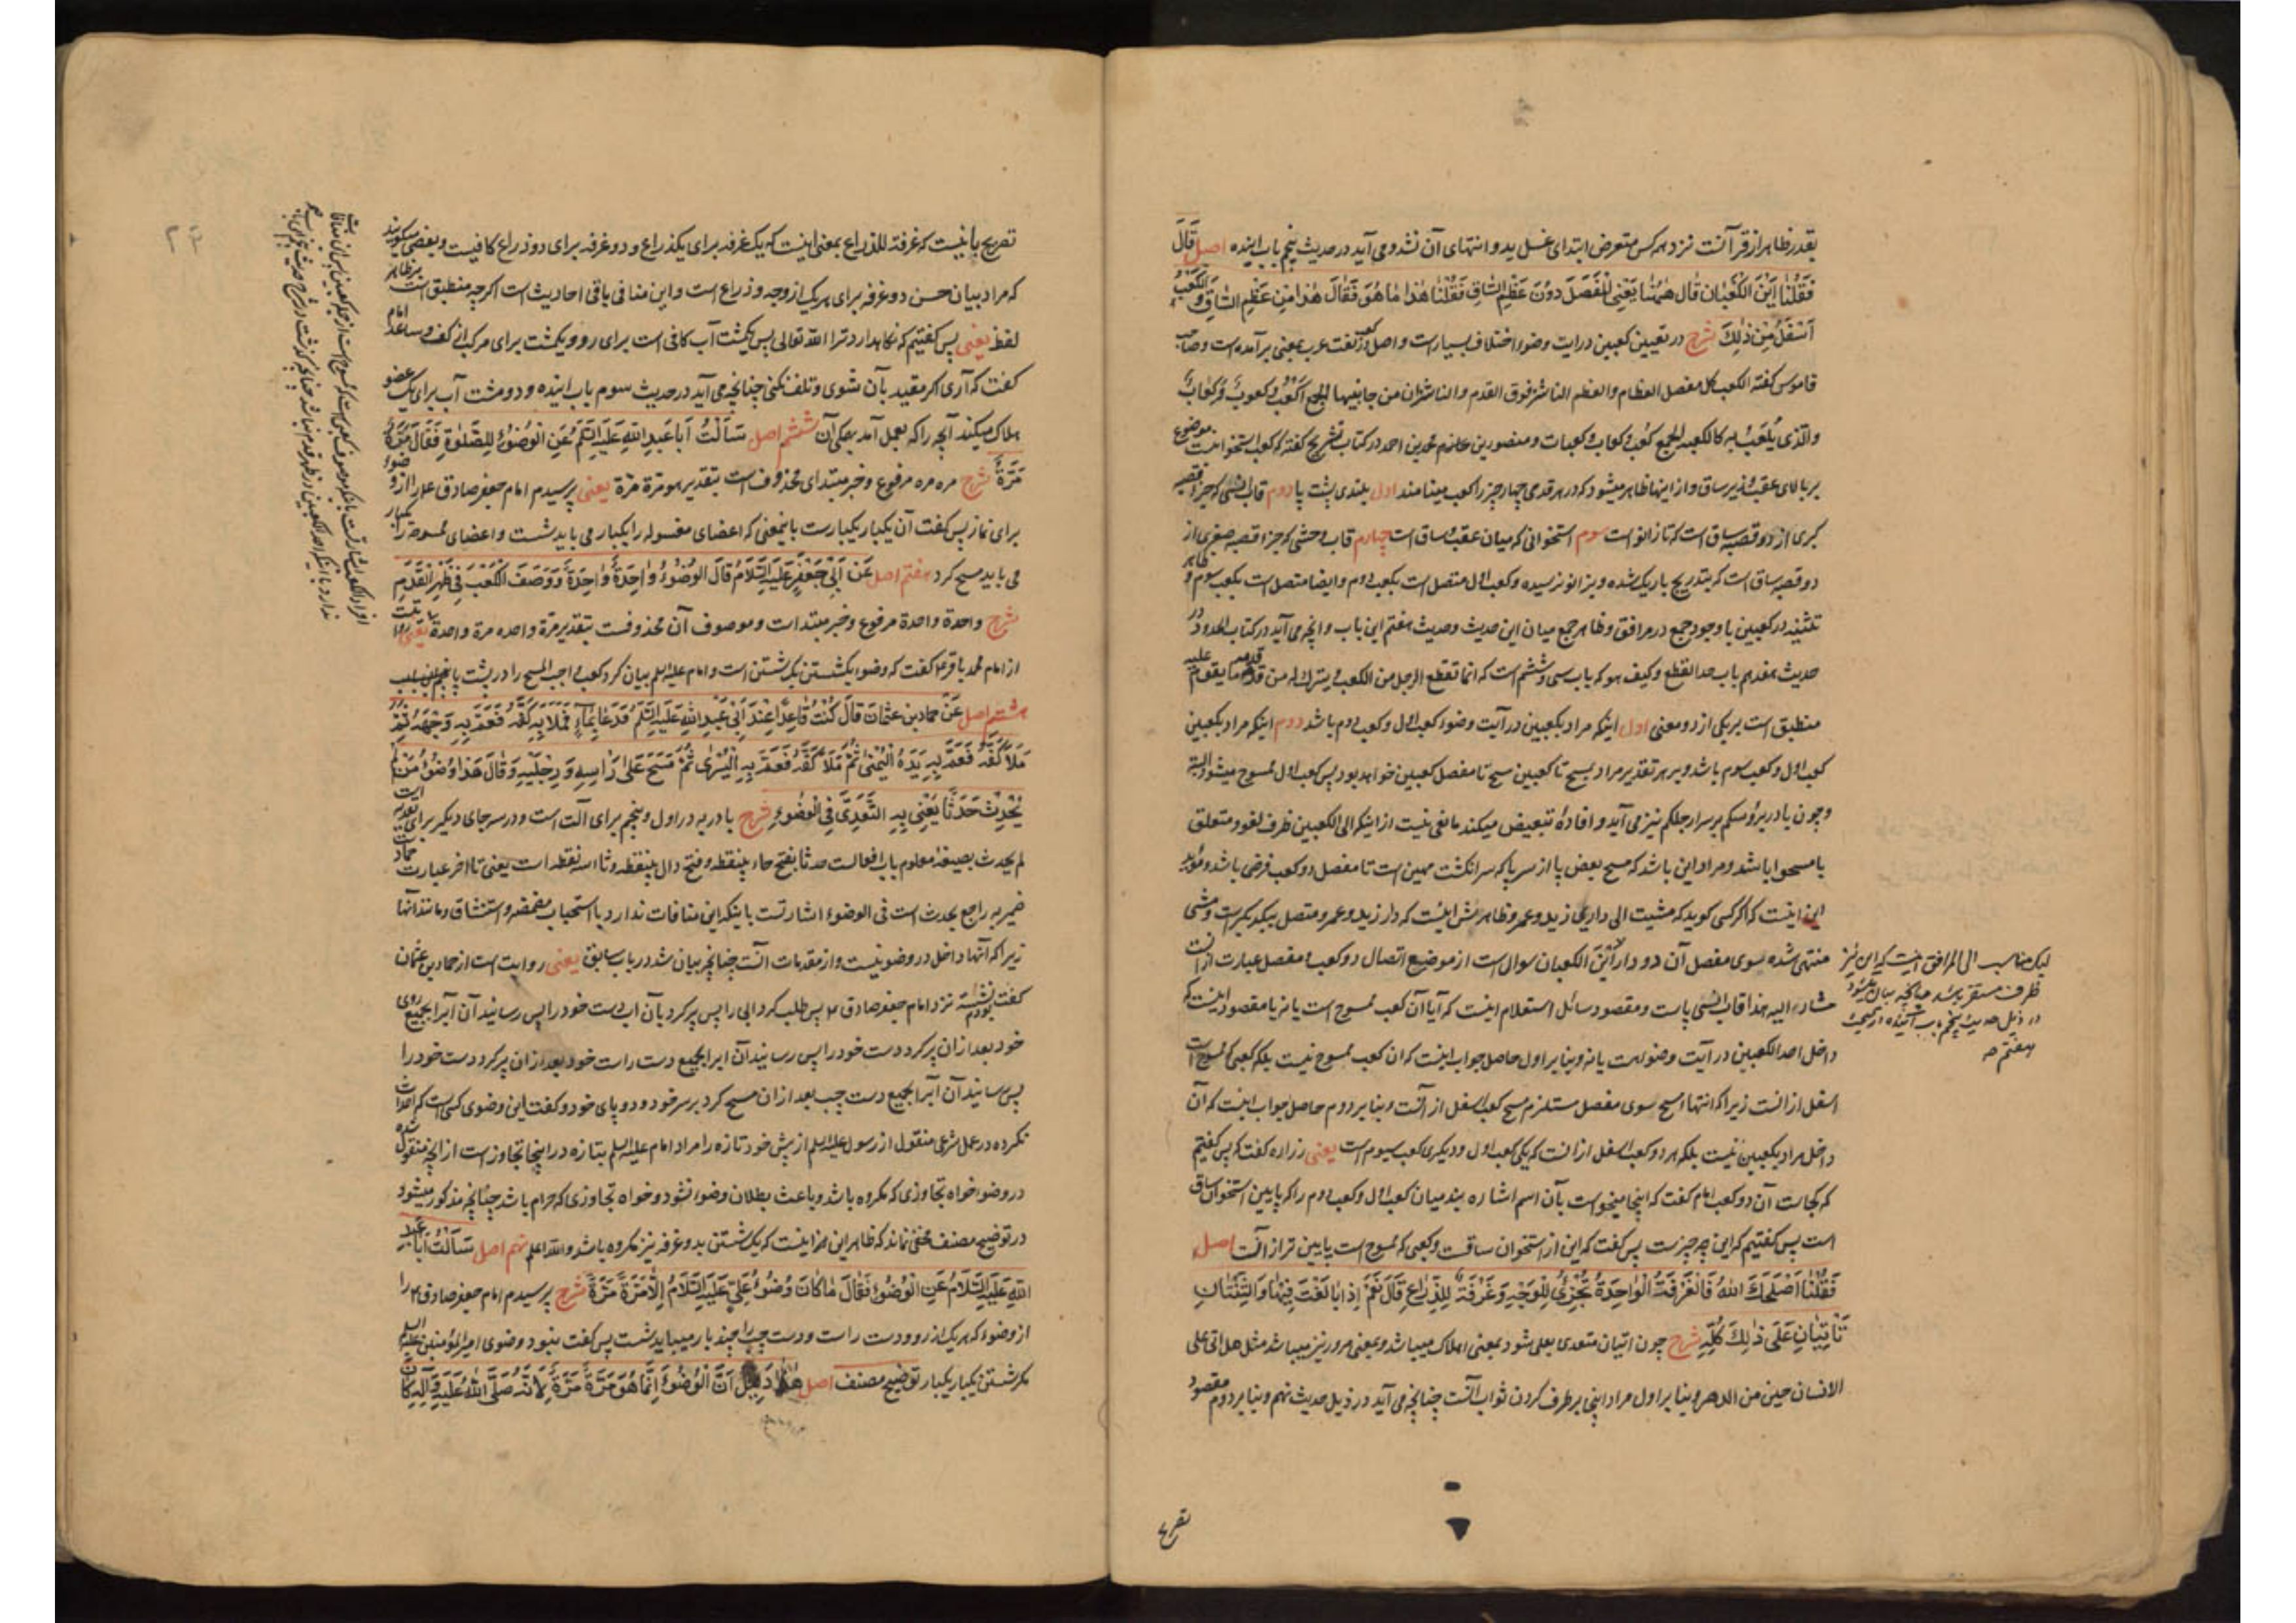 بقدر ظاهر از قرآنست نزد همه کس متعرض ابتدای غسل ید و انتهای آن نشد و می آید در حدیث پنجم باب آینده اصل قَالَ
فَقُلْنَا اَیْنَ الْکَعْبَانِ قَالَ هٰهُنَا یَعْنِی الْمَفْصَلَ دُوْنَ عَظْمِ السَّاقِ فَقُلْنَا هٰذَا مَا هُوَ فَقَالَ هٰذَا مِنْ عَظْمِ السَّاقِ وَ الْکَعْبُ
اَسْفَلُ مِنْ ذٰلِکَ شرح در تعیین کعبین در آیت وضوء اختلاف بسیارست و اصل کعب در لغت عرب بمعنی برآمده است و صاحب
قاموس کفته الکعب کل مفصل العظام والعظم الناشز فوق القدم والناشزان من جانبیها الجمع اَکْعُبٌ و کعوبٌ و کِعَابٌ
والذی یُلعَبُ به کالکعبه الجمع کُعْب و کعاب و کعبات و منصور بن محمد بن احمد در کتاب تشریح کفته که کعب استخوانیست موضوع
بر بالای عقب و زیر ساق و از اینها ظاهر میشود که در هر قدمی چهار چیز را کعب مینامند اول بلندی پشت پا دوم قاب انسی که جزء قصبه
کبری از دو قصبه ساق است که تا زانو است سوم استخوانی که میان عقب و ساق است چهارم قاب وحشی که جزء قصبه صغری از
دو قصبه ساق است که بتدریج باریک شده و بزانو نرسیده و کعب اول متصل است بکعب دوم و ایضا متصل است بکعب سوم و ظاهر
تثنیه در کعبین با وجود جمع در مرافق و ظاهر جمع میان این حدیث و حدیث هفتم این باب و انچه می آید در کتاب الحدود در
حدیث هفدهم باب حد القطع و کیف هو که باب سی و ششم است که انما تقطع الرجل من الکعب و یترک له من قدمه ما یقوم علیه
منطبق است بر یکی از دو معنی اول اینکه مراد بکعبین در آیت وضوء کعب اول و کعب دوم باشد دوم اینکه مراد بکعبین
کعب اول و کعب سوم باشد و بر هر تقدیر مراد بمسح تا کعبین مسح تا مفصل کعبین خواهد بود پس کعب اول ممسوح میشود البته
و چون با در برؤسکم بر سر ارجلکم نیز می آید و افادۀ تبعیض میکند مانعی نیست از اینکه الی الکعبین ظرف لغو و متعلق
بامسحوا باشد و مراد این باشد که مسح بعض پا از سر پا که سر انکشت مهین است تا مفصل دو کعب فرض باشد و مؤید
این اینست که اگر کسی کوید که مشیت الی داری زید و عمرو ظاهرش اینست که دار زید و عمرو متصل بیکدیکرست و مشی
منتهی شده سوی مفصل آن دو دار این الکعبان سوال است از موضع اتصال دو کعب و مفصل عبارت از آنست
مشار الیه هذا قاب انسی پاست و مقصود سائل استعلام اینست که آیا آن کعب ممسوح است یا نه یا مقصود اینست که
داخل احد الکعبین در آیت وضو هست یا نه و بنا بر اول حاصل جواب اینست که ان کعب ممسوح نیست بلکه کعبی که ممسوح است
اسفل از انست زیرا که انتهاء مسح سوی مفصل مستلزم مسح کعب اسفل از آنست و بنا بر دوم حاصل جواب اینست که آن
داخل مراد بکعبین نیست بلکه هر دو کعب اسفل از انست که یکی کعب اول و دیکری کعب سیوم است یعنی زراره کفت که پس کفتیم
که کجاست آن دو کعب امام کفت که اینجا میخواست بآن اسم اشاره بند میان کعب اول و کعب دوم را که پایین استخوان ساق
است پس کفتیم که این چه چیزست پس کفت که این از استخوان ساقست و کعبی که ممسوح است پایین تر از آنست اصل
فَقُلْنَا اَصْلَحَکَ اللّٰهُ فَالْغَرْفَةُ الْوَاحِدَةُ تُجْزِئُ لِلْوَجْهِ وَ غَرْفَةٌ لِلذِّرَاعِ قَالَ نَعَمْ اِذَا بَالَغْتَ فِیْهَا وَ الثِّنْتَانِ
تَأْتِیَانِ عَلٰی ذٰلِکَ کُلِّهِ شرح چون اتیان متعدی بعلی شود بمعنی اهلاک میباشد و بمعنی مرور نیز میباشد مثل هل اتی علی
الانسان حین من الدهر و بنا بر اول مراد اینی برطرف کردن ثواب آنست چنانچه می آید در ذیل حدیث نهم و بنا بر دوم مقصود
لیکن مناسب الی المرافق اینست که این نیز
ظرف مستقر باشد چنانچه بیان میشود
در ذیل حدیث پنجم باب آینده
هفتم مه
تصریح
تصریح باینست که غرفة للذراع بمعنی اینست که یک غرفه برای یک ذراع و دو غرفه برای دو ذراع کافیست و بعضی میکویند
که مراد بیان حسن دو غرفه برای هر یک از وجه و ذراع است و این منافی باقی احادیث است اکرچه منطبق است بر ظاهر
لفظ یعنی پس کفتیم که نکاهدارد ترا الله تعالی پس یکمشت آب کافی است برای رو و یکمشت برای هر یک از کف و ساعد امام
کفت که آری اکر مقید بآن شوی و تلف نکنی چنانچه می آید در حدیث سوم باب آینده و دو مشت آب برای یک عضو
هلاک میکند آنچه را که بعمل آمد همکی آن ششم اصل سَأَلْتُ اَبَا عَبْدِ اللّٰهِ عَلَیْهِ السَّلَمُ عَنِ الْوُضُوْءِ لِلصَّلٰوةِ فَقَالَ مَرَّةً
مَرَّةً شرح مره مره مرفوع و خبر مبتدای محذوف است بتقدیر هو مَرّة مرّة یعنی پرسیدم امام جعفر صادق ع را از وضوء
برای نماز پس کفت آن یکبار یکبارست باینمعنی که اعضای مغسوله را یکبار می باید شست و اعضای ممسوحه را یکبار
می باید مسح کرد هفتم اصل عَنْ اَبِیْ جَعْفَرٍ عَلَیْهِ السَّلَامُ قَالَ الْوُضُوْءُ وَاحِدَةً وَاحِدَةً وَ وَصَفَ الْکَعْبَ فِیْ ظَهْرِ الْقَدَمِ
شرح واحدة واحدة مرفوع و خبر مبتدا است و موصوف آن محذوفست بتقدیر مرة واحده مرة واحدة یعنی روایتست
از امام محمد باقر ع کفت که وضوء یکشستن یکشستن است و امام علیه السلم بیان کرد کعب واجب المسح را در پشت پا
هشتم اصل عَنْ حَمَّادِ بْنِ عُثْمَانَ قَالَ کُنْتُ قَاعِدًا عِنْدَ اَبِیْ عَبْدِ اللّٰهِ عَلَیْهِ السَّلَمُ فَدَعَا بِمَاءٍ فَمَلَأَ بِهِ کَفَّهُ فَعَمَّ بِهِ وَجْهَهُ ثُمَّ
مَلَأَ کَفَّهُ فَعَمَّ بِهِ یَدَهُ الْیُمْنٰی ثُمَّ مَلَأَ کَفَّهُ فَعَمَّ بِهِ الْیُسْرٰی ثُمَّ مَسَحَ عَلٰی رَأْسِهِ وَ رِجْلَیْهِ وَ قَالَ هٰذَا وُضُوْءُ مَنْ لَمْ
یُحْدِثْ حَدَثًا یَعْنِی بِهِ التَّعَدِّیَ فِی الْوُضُوْءِ شرح با در به در اول و پنجم برای آلت است و در سر جای دیکر برای تعدیه است
لم یحدث بصیغۀ معلوم باب افعالست حدثا بفتح حاء بینقطه و فتح دال بینقطه و ثاء سه نقطه است یعنی تا اخر عبارت حمادست
ضمیر به راجع بحدث است فی الوضوء اشارتست باینکه این منافات ندارد با استحباب مضمضه و استنشاق و مانند آنها
زیرا که آنها داخل در وضو نیست و از مقدمات آنست چنانچه بیان شد در باب سابق یعنی روایت است از حماد بن عثمان
کفت نشسته بودم نزد امام جعفر صادق ع پس طلب کرد ابی را پس پر کرد بآن آب دست خود را پس رسانید آن آبرا بجمیع روی
خود بعد از ان پر کرد دست خود را پس رسانید آن ابرا بجمیع دست راست خود بعد از ان پر کرد دست خود را
پس رسانید آن آبرا بجمیع دست چپ بعد از ان مسح کرد بر سر خود و دو پای خود و کفت این وضوی کسی است که احداث
نکرده در عمل شرعی منقول از رسول علیه السلم از پیش خود تازه را مراد امام علیه السلم بتازه در اینجا تجاوز است از انچه منقول شده
در وضو خواه تجاوزی که مکروه باشد و باعث بطلان وضوء نشود و خواه تجاوزی که حرام باشد چنانچه مذکور میشود
در توضیح مصنف مخفی نماند که ظاهر این اینست که یکشستن بدو غرفه نیز مکروه باشد والله اعلم نهم اصل سَأَلْتُ اَبَا عَبْدِ
اللّٰهِ عَلَیْهِ السَّلَامُ عَنِ الْوُضُوْءِ فَقَالَ مَا کَانَ وُضُوْءُ عَلِیٍّ عَلَیْهِ السَّلَامُ اِلَّا مَرَّةً مَرَّةً شرح پرسیدم امام جعفر صادق ع را
از وضوء که هر یک از رو و دست راست و دست چپ را چند بار میباید شست پس کفت نبود وضوی امیر المؤمنین علیه السلم
مکر شستن یکبار یکبار توضیح مصنف اصل هٰذَا دَلِیْلٌ اَنَّ الْوُضُوْءَ اِنَّمَا هُوَ مَرَّةً مَرَّةً لِاَنَّهُ صَلَّی اللّٰهُ عَلَیْهِ وَ آلِهِ کَانَ